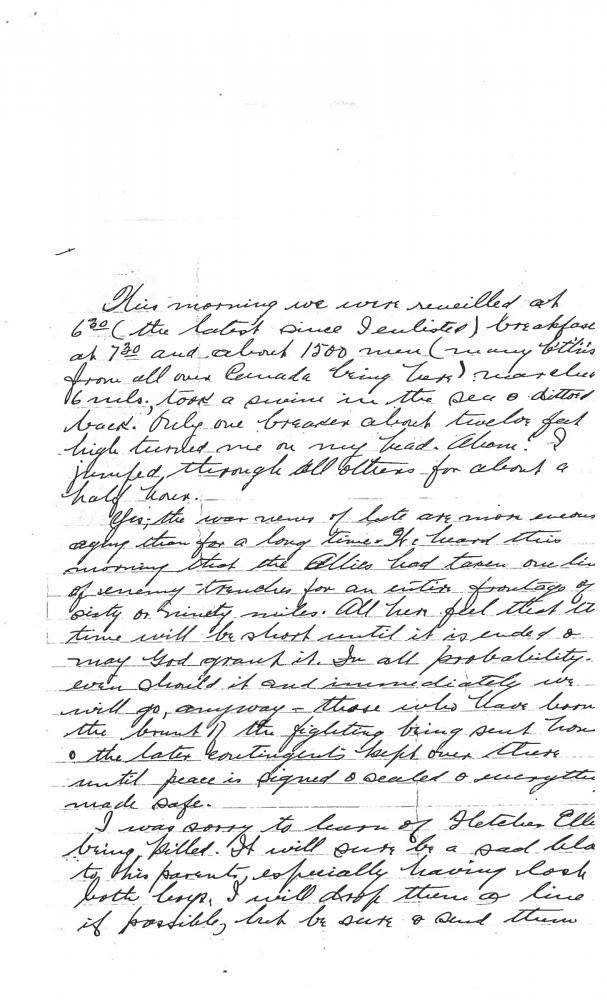 This morning we were reveilled at
6 30 (the latest since I enlisted) breakfas
at 7 30 and about 1500 men (many
from all over Canada being here) marche
6 mls., took a swim in the sea & dittoed
back. Only one breaker about twelve feet
high turned me on my head. Ahem! I
jumped through all others for about a
half hour.
Yes, the war news of late are more encour
aging than for a long time. We heard this
morning that the Allies had taken one lin
of enemy trenches for an entire frontage of
sixty or ninety miles. All here feel that th
time will be short until it is ended &
may God grant it. In all probability -
even should it end immediately we
will go, anyway - those who have born
the brunt of the fighting being sent hom
& the later contingents kept over there
until peace is signed & sealed & everythi
made safe.
I was sorry to learn of Fletcher Elle
being killed. It will sure be a sad blo
to his parents, especially having lost
both boys. I will drop them a line
if possible, but be sure & send them